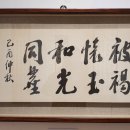 被褐
懷玉
和光
同塵
乙酉仲秋